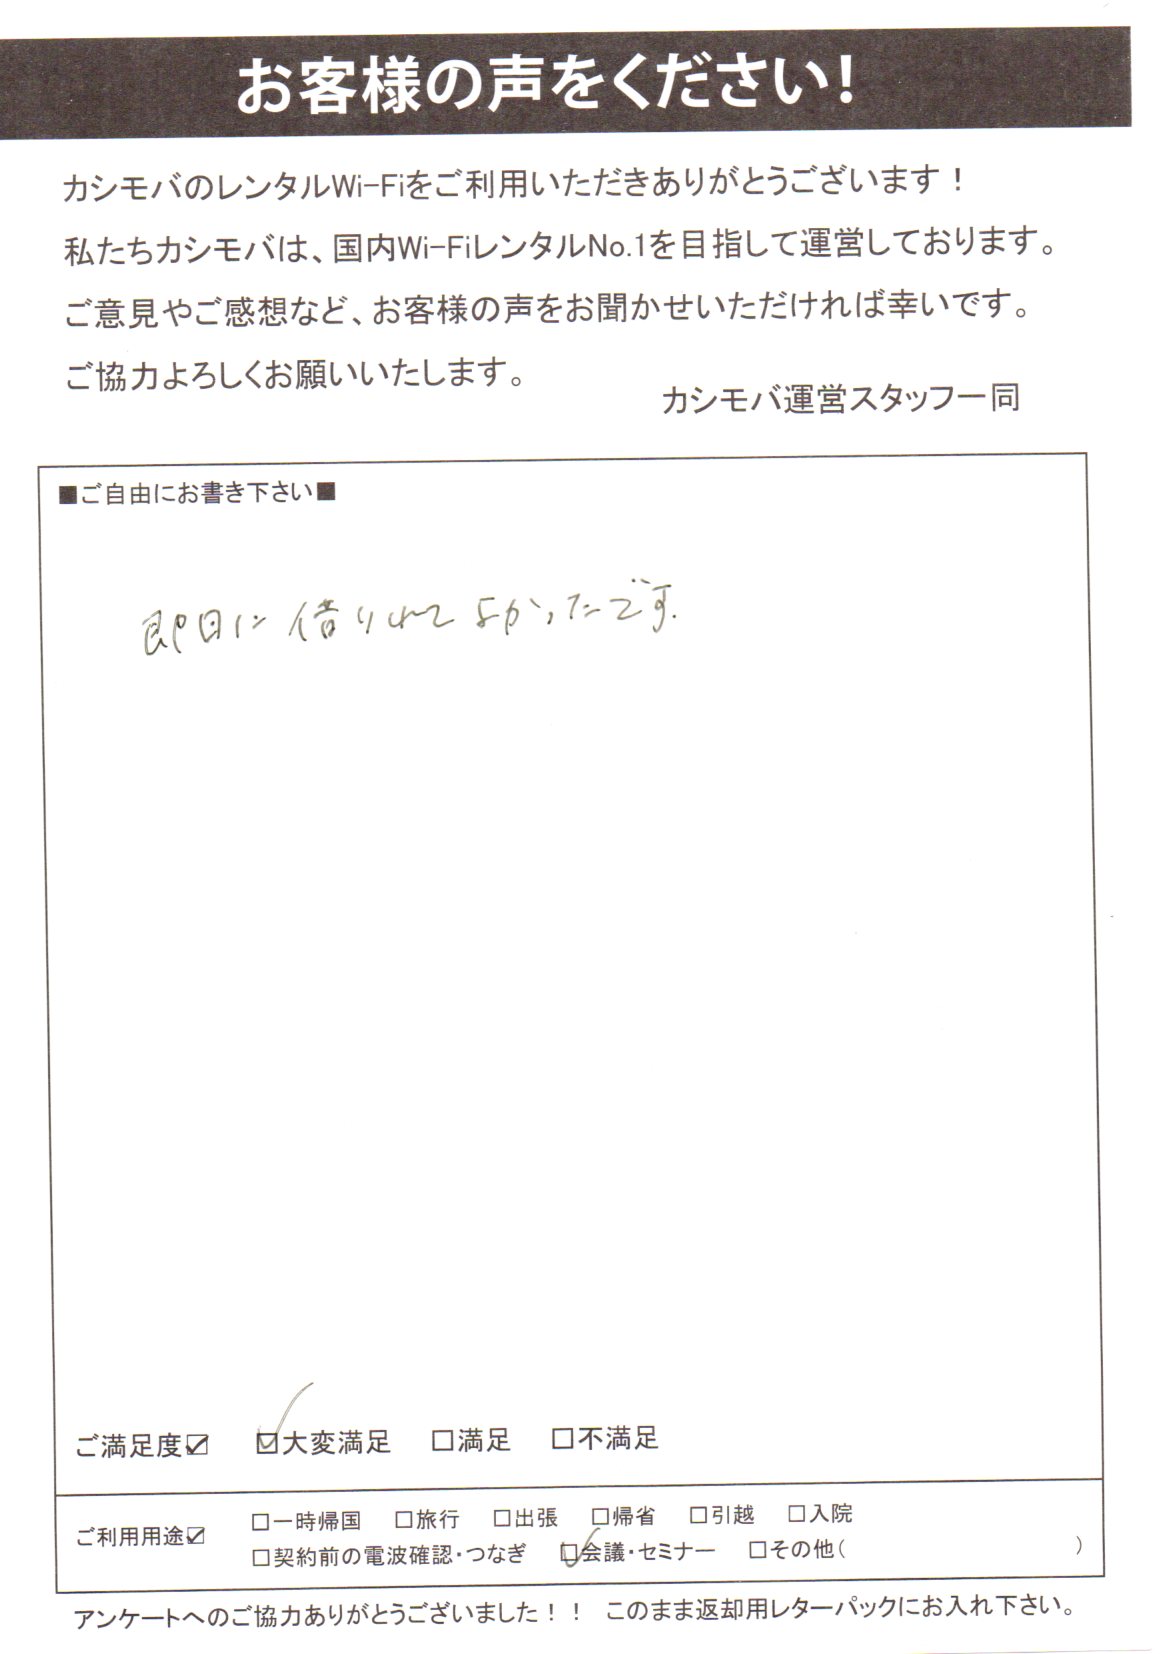 お客様の声をください!
カシモバのレンタルWi-Fiをご利用いただきありがとうございます！
私たちカシモバは、国内Wi-FiレンタルNo.1を目指して運営しております。
ご意見やご感想など、お客様の声をお聞かせいただければ幸いです。
ご協力よろしくお願いいたします。
カシモバ運営スタッフ一同
■ご自由にお書き下さい■
即日に借りれてよかったです.
ご満足度☑ ☑大変満足 □満足 □不満足
ご利用用途☑ □一時帰国 □旅行 □出張 □帰省 □引越 □入院
□契約前の電波確認・つなぎ ☑会議・セミナー □その他( )
アンケートへのご協力ありがとうございました！！ このまま返却用レターパックにお入れ下さい。